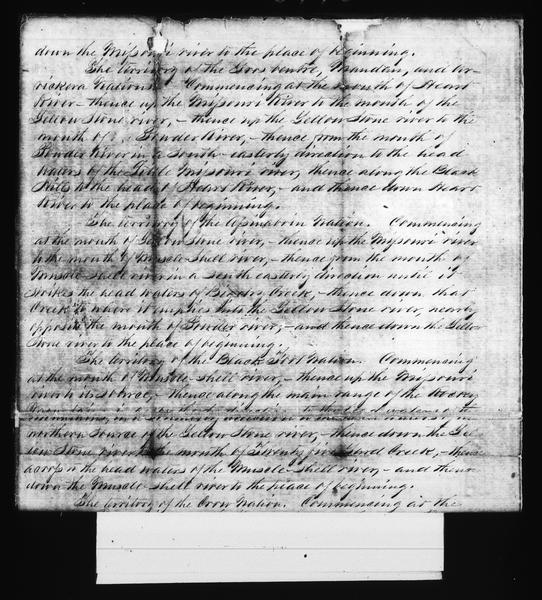 down the Missouri river to the place of beginning.
The territory of the Gros Ventre, Mandan, and Ar-
rickera Nations. Commencing at the mouth of Heart
River – thence up the Missouri River to the mouth of the
Yellow Stone river, – thence up the Yellow Stone river to the
mouth of Powder River, – thence from the mouth of
Powder River in a South-easterly direction to the head
waters of the Little Missouri river, thence along the Black
Hills to the head of Heart River, – and thence down Heart
River to the place of beginning.
The territory of the Assinaboin Nation. Commencing
at the mouth of Yellow Stone river, – thence up the Missouri river
to the mouth of Muscle-shell river, – thence from the mouth of
Muscle-shell river in a South easterly direction until it
strikes the head waters of Big dry Creek, – thence down that
Creek to where it empties into the Yellow Stone river, nearly
opposite the mouth of Powder river, – and thence down the Yellow
Stone river to the place of beginning.
The territory of the Black Foot Nation. Commencing
at the mouth of Muscle-shell river, – thence up the Missouri
river to its source, – thence along the main range of the Rocky
Mountains, in a southerly direction to the head waters of the
northern source of the Yellow Stone river, – thence down the Yel-
low Stone river to the mouth of Twenty five Yard Creek, – thence
across to the head waters of the Muscle-shell river, – and thence
down the Muscle-shell river to the place of beginning.
The territory of the Crow Nation. Commencing at the